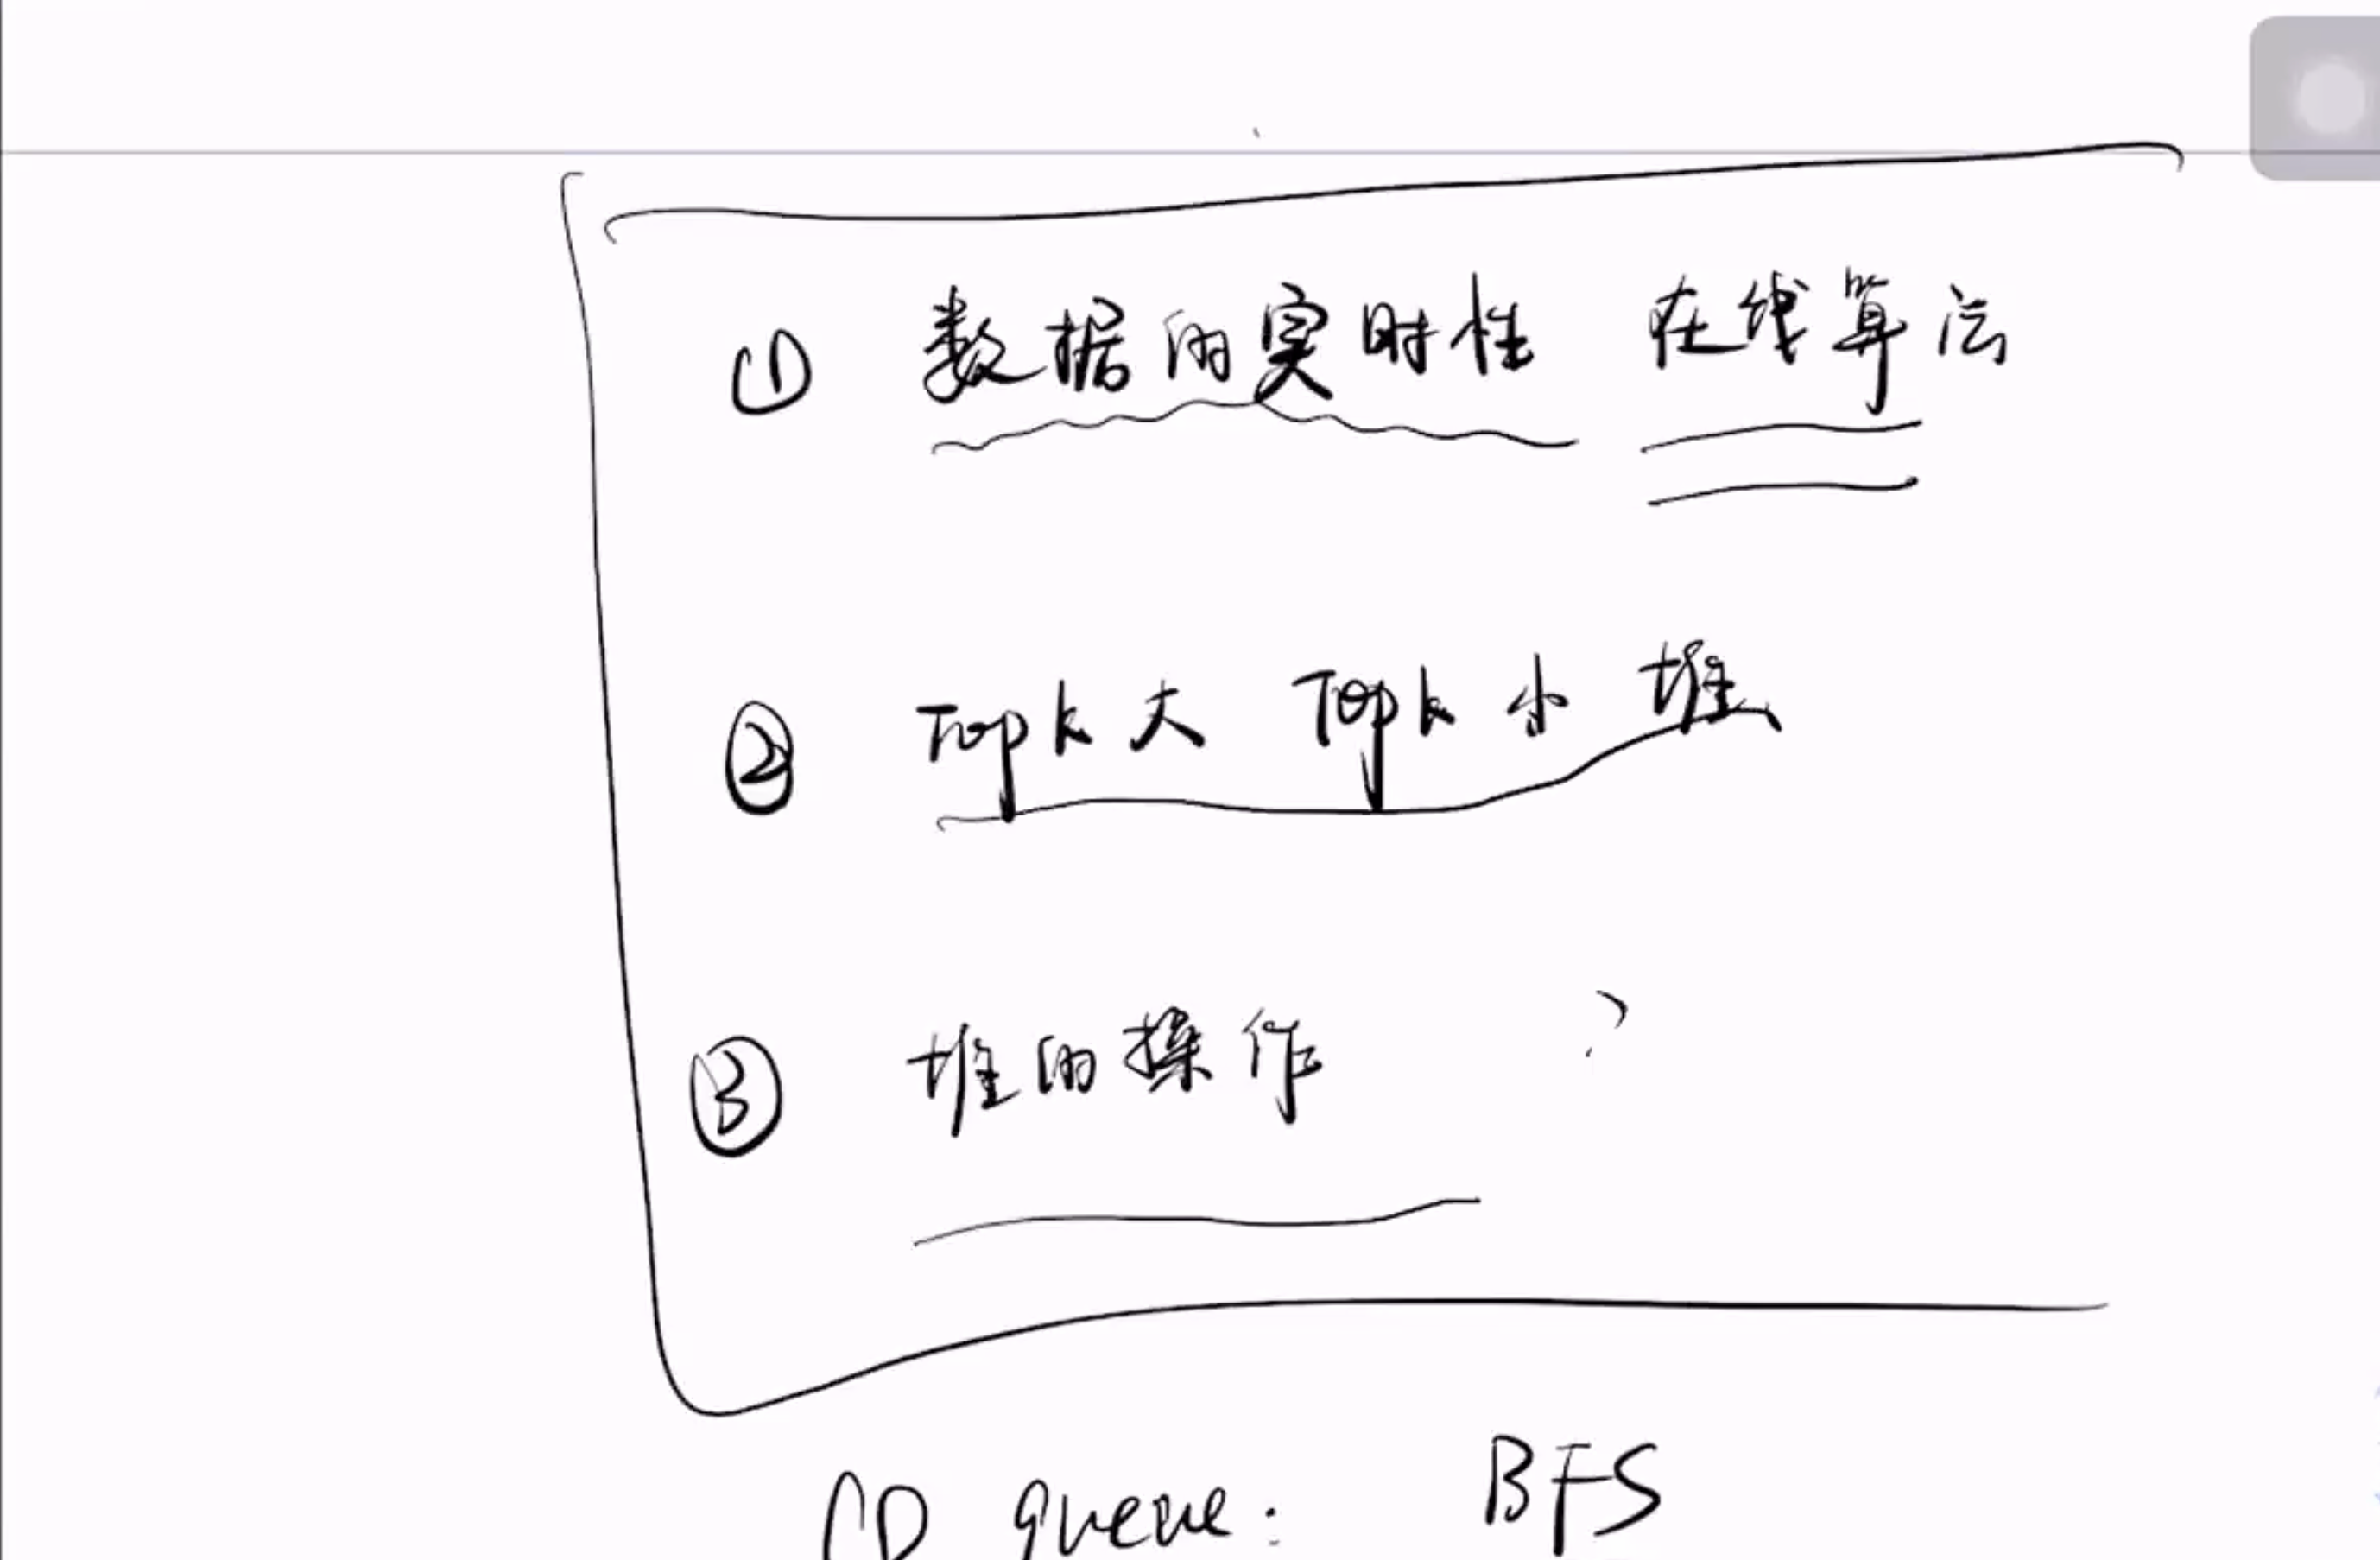 ① 数据的实时性 在线算法
② Top k 大 Top k 小 堆
③ 堆的操作 ?
① queue: BFS